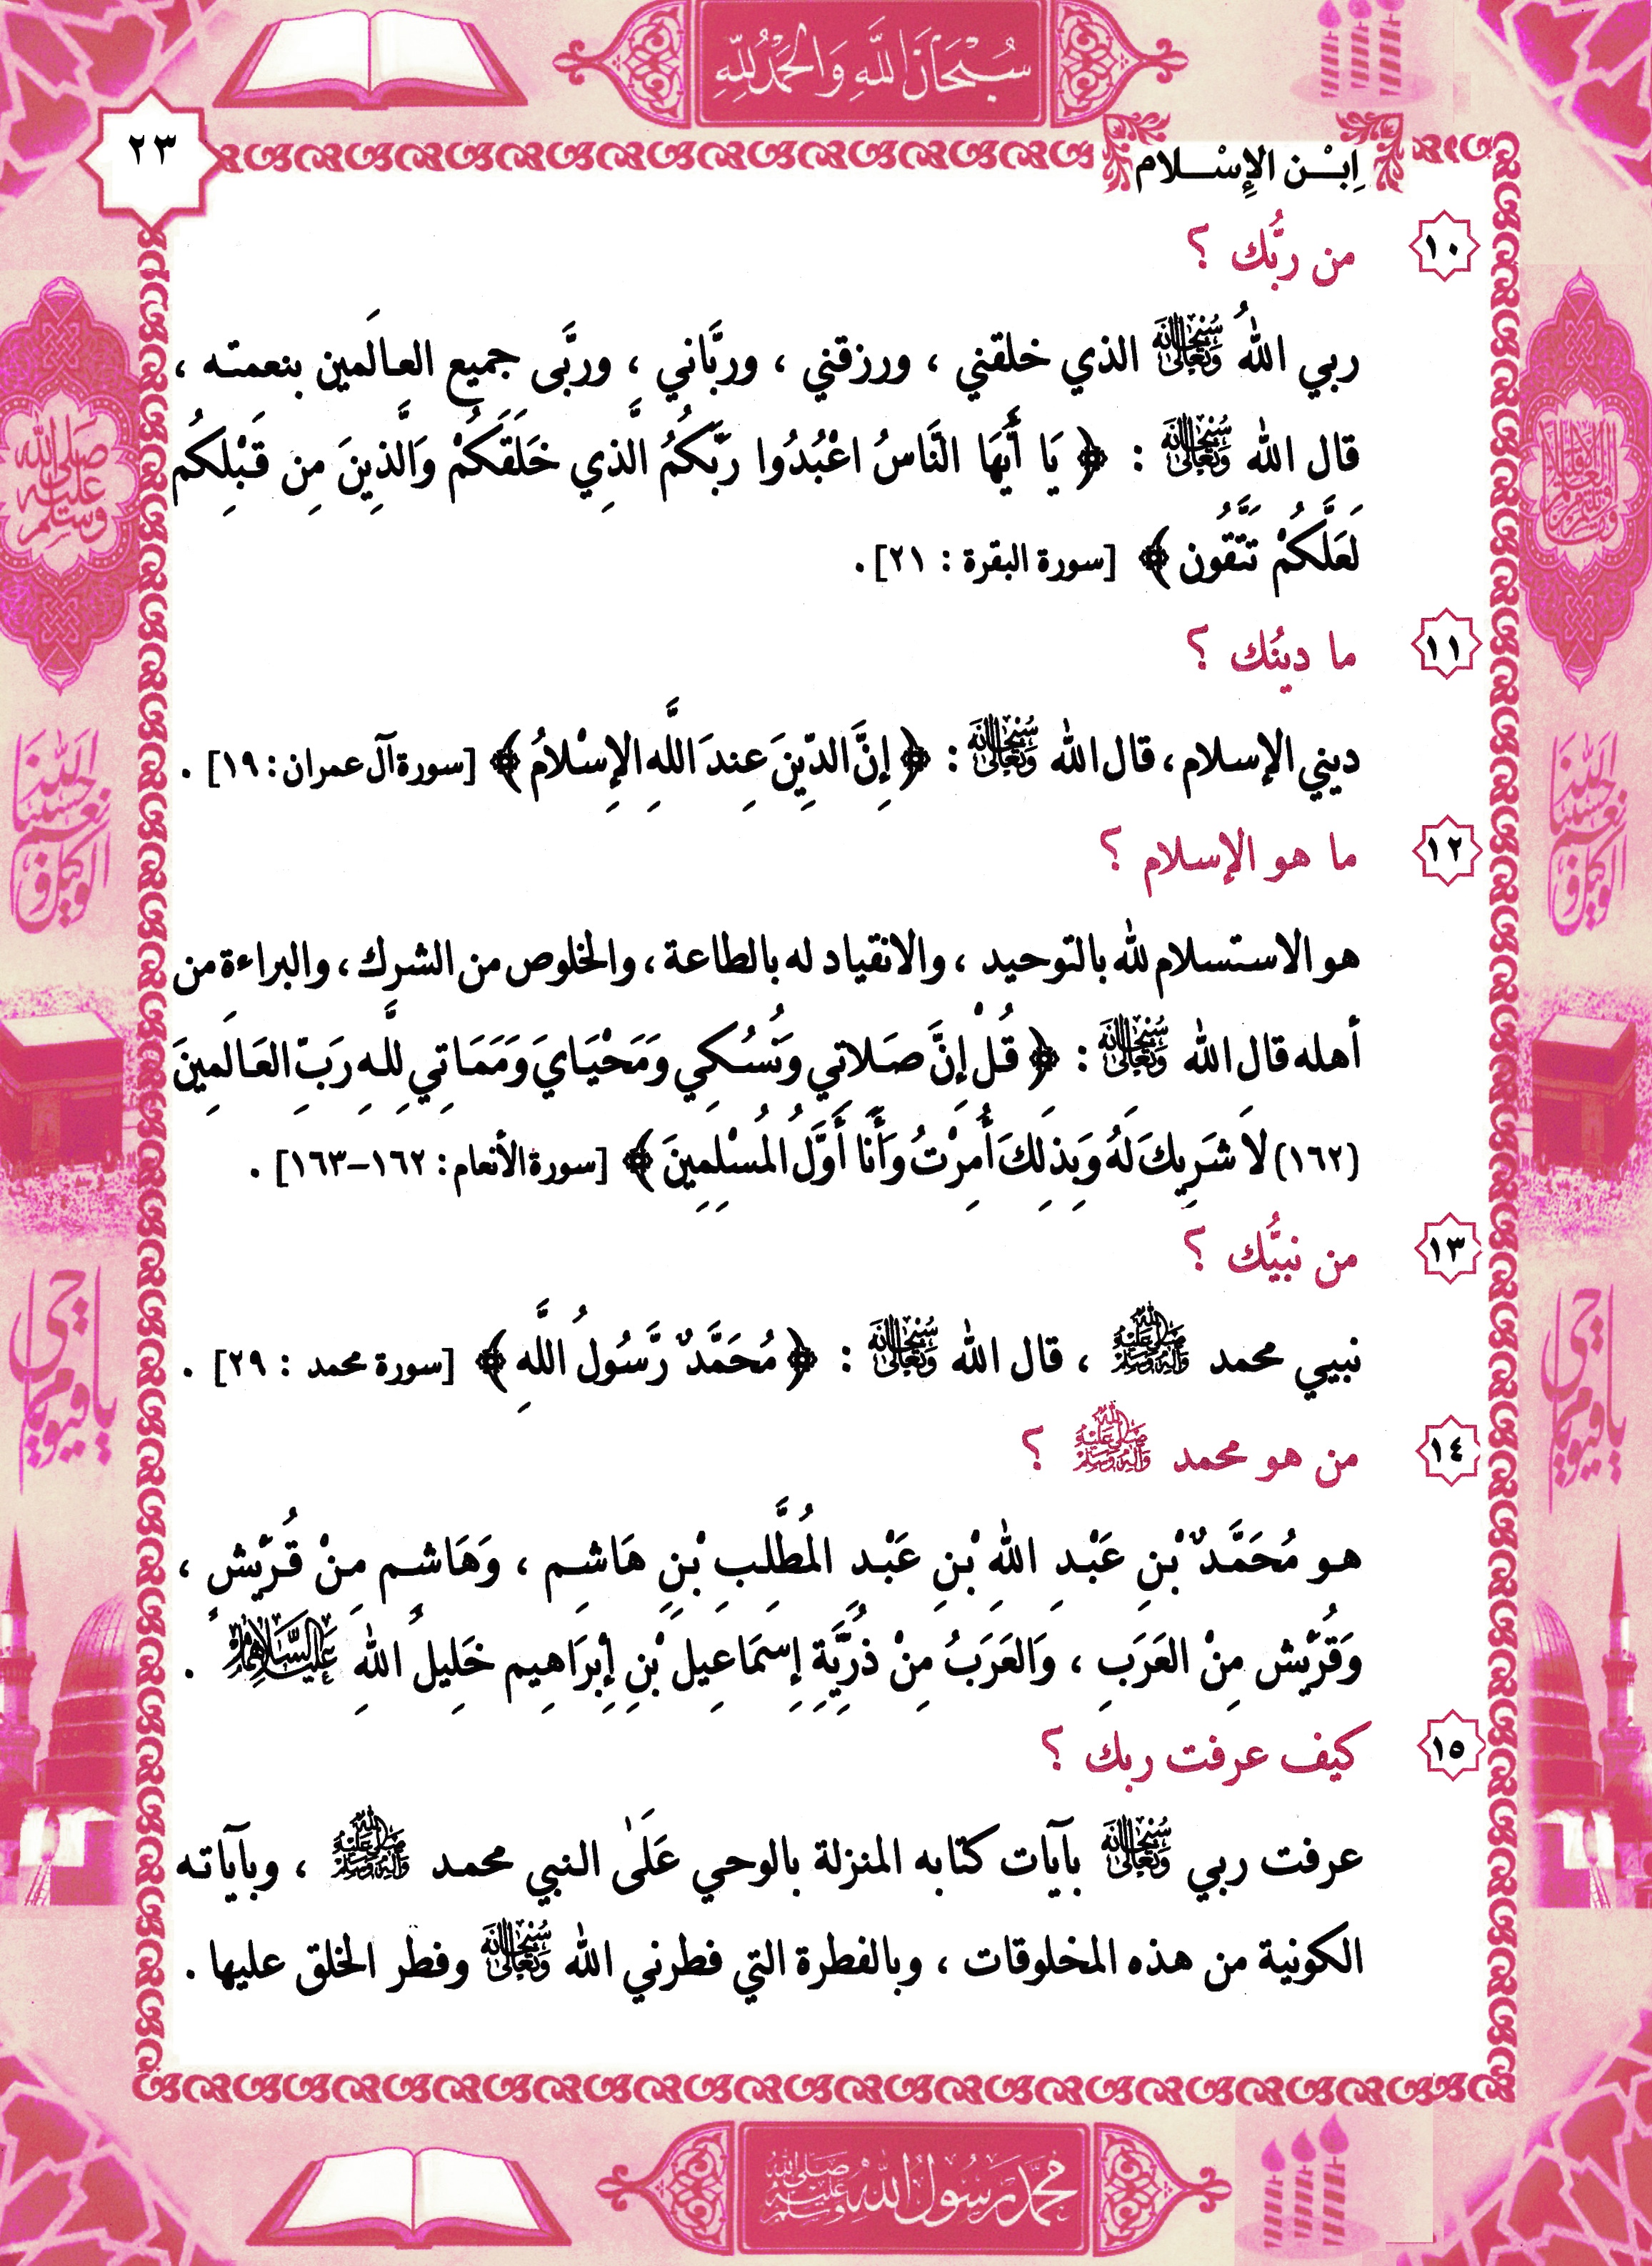 سُبْحَانَ اللَّهِ وَالْحَمْدُ لِلَّهِ
٢٣
اِبْـن الإِسْـلام
١٠ من ربُّك ؟
ربي اللهُ سُبْحَانَهُ وَتَعَالَىٰ الذي خلقني ، ورزقني ، وربَّاني ، وربَّى جميع العالَمين بنعمته ،
قال الله سُبْحَانَهُ وَتَعَالَىٰ : ﴿ يَا أَيُّهَا النَّاسُ اعْبُدُوا رَبَّكُمُ الَّذِي خَلَقَكُمْ وَالَّذِينَ مِن قَبْلِكُمْ
لَعَلَّكُمْ تَتَّقُون ﴾ [سورة البقرة : ٢١] .
١١ ما دينُك ؟
ديني الإسلام ، قال الله سُبْحَانَهُ وَتَعَالَىٰ : ﴿ إِنَّ الدِّينَ عِندَ اللَّهِ الإِسْلامُ ﴾ [سورة آل عمران : ١٩] .
١٢ ما هو الإسلام ؟
هو الاستسلام لله بالتوحيد ، والانقياد له بالطاعة ، والخلوص من الشرك ، والبراءة من
أهله قال الله سُبْحَانَهُ وَتَعَالَىٰ : ﴿ قُلْ إِنَّ صَلاتِي وَنُسُكِي وَمَحْيَايَ وَمَمَاتِي لِلَّهِ رَبِّ العَالَمِينَ
(١٦٢) لاَ شَرِيكَ لَهُ وَبِذَلِكَ أُمِرْتُ وَأَنَا أَوَّلُ المُسْلِمِينَ ﴾ [سورة الأنعام : ١٦٢–١٦٣] .
١٣ من نبيُّك ؟
نبيي محمد صَلَّى اللَّهُ عَلَيْهِ وَآلِهِ وَسَلَّمَ ، قال الله سُبْحَانَهُ وَتَعَالَىٰ : ﴿ مُحَمَّدٌ رَّسُولُ اللَّهِ ﴾ [سورة محمد : ٢٩] .
١٤ من هو محمد صَلَّى اللَّهُ عَلَيْهِ وَآلِهِ وَسَلَّمَ ؟
هـو مُحَمَّدٌ بْنِ عَبْدِ اللهِ بْنِ عَبْدِ المُطَّلِبِ بْنِ هَاشِم ، وَهَاشِم مِنْ قُرَيْشٍ ،
وَقُرَيْش مِنْ العَرَبِ ، وَالعَرَبُ مِنْ ذُرِّيَّةِ إِسْمَاعِيل بْنِ إِبْرَاهِيم خَلِيلُ اللهِ عَلَيْهِمَا السَّلَامُ .
١٥ كيف عرفت ربك ؟
عرفت ربي سُبْحَانَهُ وَتَعَالَىٰ بآيات كتابه المنزلة بالوحي عَلَىٰ النبي محمد صَلَّى اللَّهُ عَلَيْهِ وَآلِهِ وَسَلَّمَ ، وبآياته
الكونية من هذه المخلوقات ، وبالفطرة التي فطرني الله سُبْحَانَهُ وَتَعَالَىٰ وفطر الخلق عليها .
صلى الله عليه وسلم
حسبنا الله ونعم الوكيل
حسبنا الله ونعم الوكيل
يا حي يا قيوم
يا حي يا قيوم
محمد رَسُولُ الله صلى الله عليه وسلم